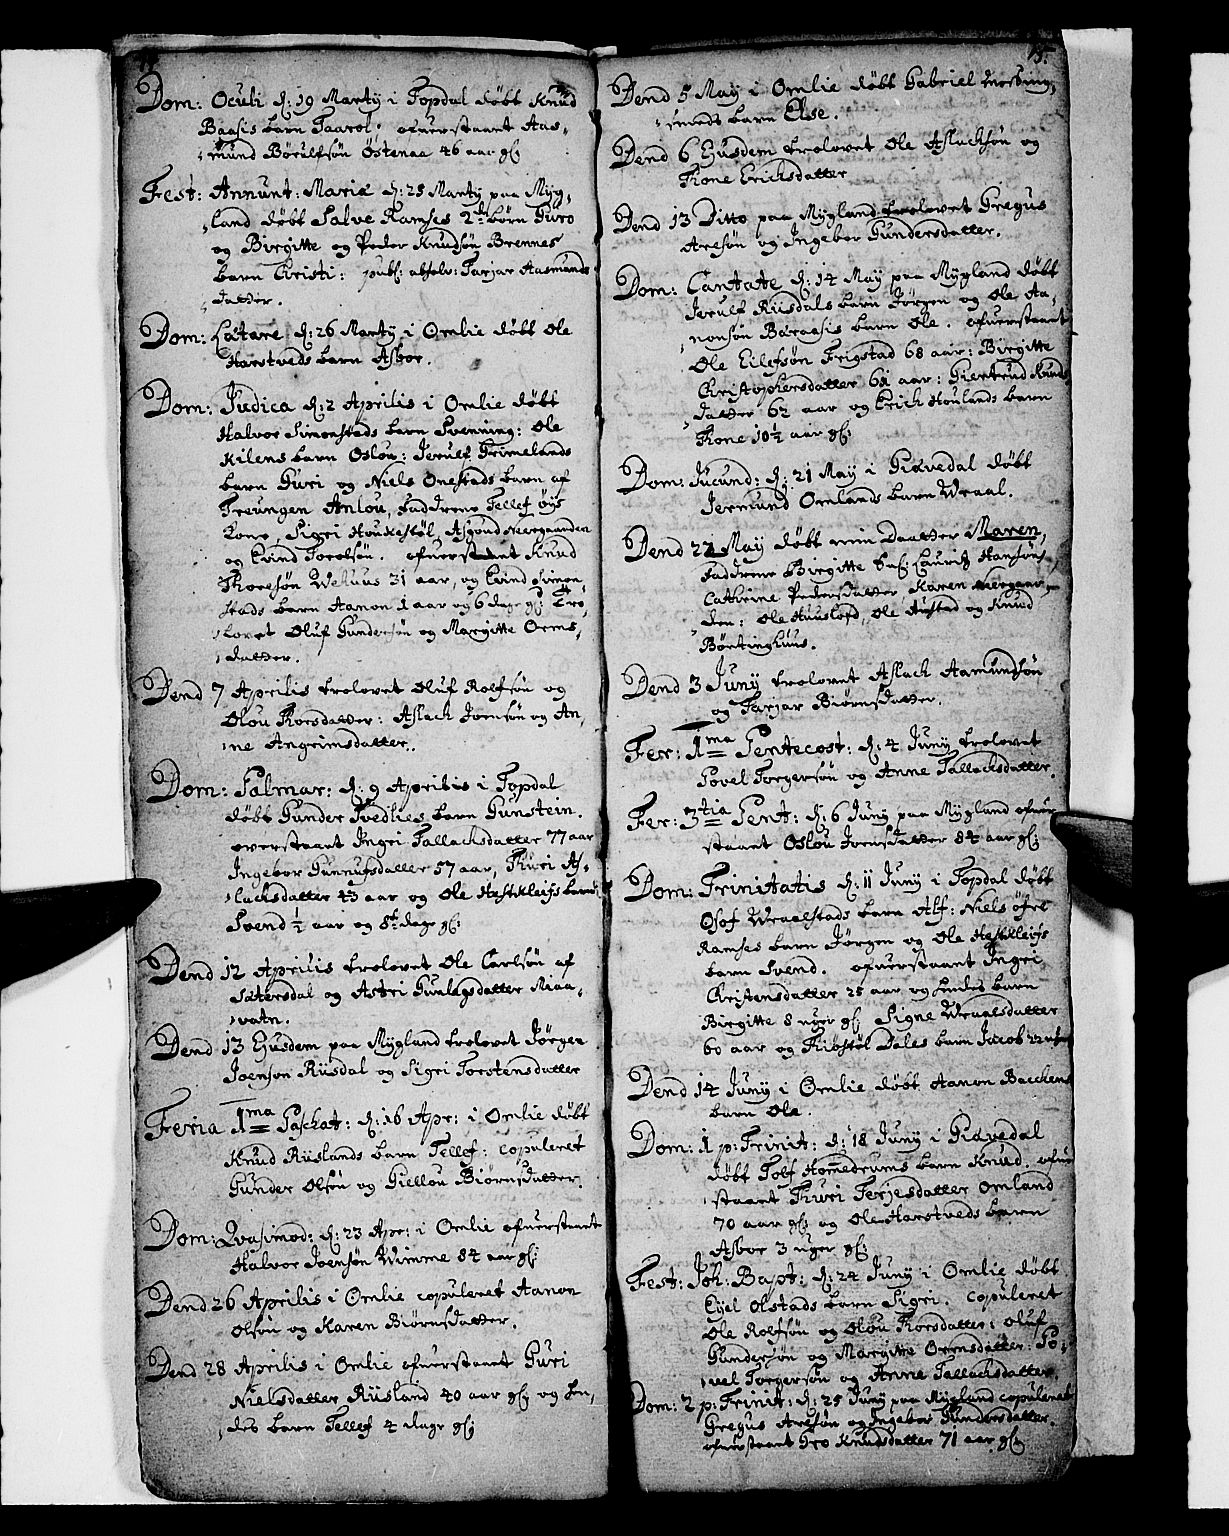 14.
Dom: Oculi d: 19 Martÿ i Topdal döbt Knud
Baasis barn Taarol: ofuerstaaet Aas-
mund Börulfsön Östenaa 46 aar gl:
Fest: Annunt: Mariæ d: 25 Martÿ paa Mÿg-
land döbt Salve Ramses 2de börn Guro
og Birgitte og Peder Knudsön Brennes
barn Christi: publ: absolv: Tarjar Aasmunds
datter.
Dom: Lætare d: 26 Martÿ i Omlie döbt Ole
Harstveds barn Asbor.
Dom: Judica d: 2 Aprilis i Omlie döbt
Halvor Simonstads barn Svenning: Ole
Kilens barn Oslou: Jerulf Grimelands
barn Guri og Niels Onestads barn af
Treungen Anlou, faddrene Tellef öÿs
kone, Sigri Houkestöl, Asgond Neergaarden
og Evind Torolsön. ofuerstaaet Knud
Thoresön Wehuus 31 aar, og Evind Simon-
stads barn Aanon 1 aar og 6 dage gl: Tro-
lovet Oluf Gundersön og Margitte Orms-
datter.
Dend 7 Aprilis trolovet Oluf Rolfsön og
Olou Thorsdatter: Aslach Joensön og An-
ne Angrimsdatter.
Dom: Palmar: d: 9 Aprilis i Topdal
döbt Gunder Tvedlies barn Gunstein.
overstaaet Ingri Tallachsdatter 77 aar
Ingebor Gunnufsdatter 57 aar, Thuri As-
lachsdatter 43 aar og Ole Hestkleifs barn
Svend ½ aar og 8te dage gl:
Dend 12 Aprilis trolovet Ole Carlsön af
Sætersdal og Astri Gunlagsdatter Miaa-
vatn.
Dend 13 Ejusdem paa Mÿgland trolovet Jörgen
Joensön Riisdal og Sigri Torstensdatter
Feria 1ma Paschat: d: 16 Apr: i Omlie döbt
Knud Riislands barn Tellef: copuleret
Gunder Olsön og Giellou Biörnsdatter.
Dom: Qvasimod: d: 23 Apr: i Omlie ofuerstaaet
Halvor Joensön Wimme 84 aar gl:
Dend 26 Aprilis i Omlie copuleret Aanon
Olsön og Karen Biörnsdatter.
Dend 28 Aprilis i Omlie ofuerstaaet Guri
Nielsdatter Riisland 40 aar gl: og Lin-
des barn Tellef 4 dage gl:
15.
Dend 5 Maÿ i Omlie döbt Gabriel
smeds barn Else.
Dend 6 Ejusdem trolovet Ole Aslachsön og
Thone Erichsdatter
Dend 13 Ditto paa Mÿgland trolovet Gregus
Aresön og Ingebor Gundersdatter.
Dom: Cantate d: 14 Maÿ paa Mÿgland döbt
Jerulf Riisdals barn Jörgen og Ole Aa-
nonsön Baraasis barn Ole. ofuerstaaet
Ole Eilefsön Frigstad 68 aar: Birgitte
Christophersdatter 61 aar: Giertrud Knuds
datter 62 aar og Erich Houlands barn
Thone 10½ aar gl:
Dom: Jucund: d: 21 Maÿ i Giøvedal döbt
Jermund Omlands barn Wraal.
Dend 22 Maÿ döbt min daatter Maren,
faddrene Birgitte Sal: Lauridz Hansöns,
Cathrine Pedersdatter Karen Neergaar-
den: Ole Huusloed, Ole Austad og Knud
Börtinghuus.
Dend 3 Junÿ trolovet Aslach Aamundsön
og Tarjar Biörnsdatter.
Fer: 1ma Pentecost: d: 4 Junÿ trolovet
Povel Torgersön og Anne Tallachsdatter.
Fer: 3tia Pent: d: 6 Junÿ paa Mÿgland ofuer
staaet Oslou Joensdatter 84 aar gl:
Dom: Trinitatis d: 11 Junÿ i Topdal döbt
Osof Wraalstads barn Alf: Niels öfre
Ramses barn Jörgen og Ole Hestkleifs
barn Svend. ofuerstaaet Ingri
Christensdatter 25 aar og Lindes barn
Birgitte 8 uger gl: Signe Wraalsdatter
60 aar og Kidstöl Dales barn Jacob 22 uger
Dend 14 Junÿ i Omlie döbt Aanon Bachens
barn Ole.
Dom: 1 p: Trinit: d: 18 Junÿ i Giøvedal
döbt Tolf Hommedrums barn Knud. ofuer
staaet Thuri Terjesdatter Omland
70 aar gl: og Ole Harstveds barn
Asbor 3 uger gl:
Fest: Joh: Bapt: d: 24 Junÿ i Omlie döbt
Eijel Olstads barn Sigri. copuleret
Ole Rolfsön og Olou Thorsdatter: Oluf
Gundersön og Margitte Ormsdatter: Po-
vel Torgersön og Anne Tallachsdatter.
Dom: 2 p: Trinit: d: 25 Junÿ paa Mÿgland copuleret
Gregus Aresön og Ingebor Gundersdatter.
ofuerstaaet Gro Knudsdatter 71 aar gl: